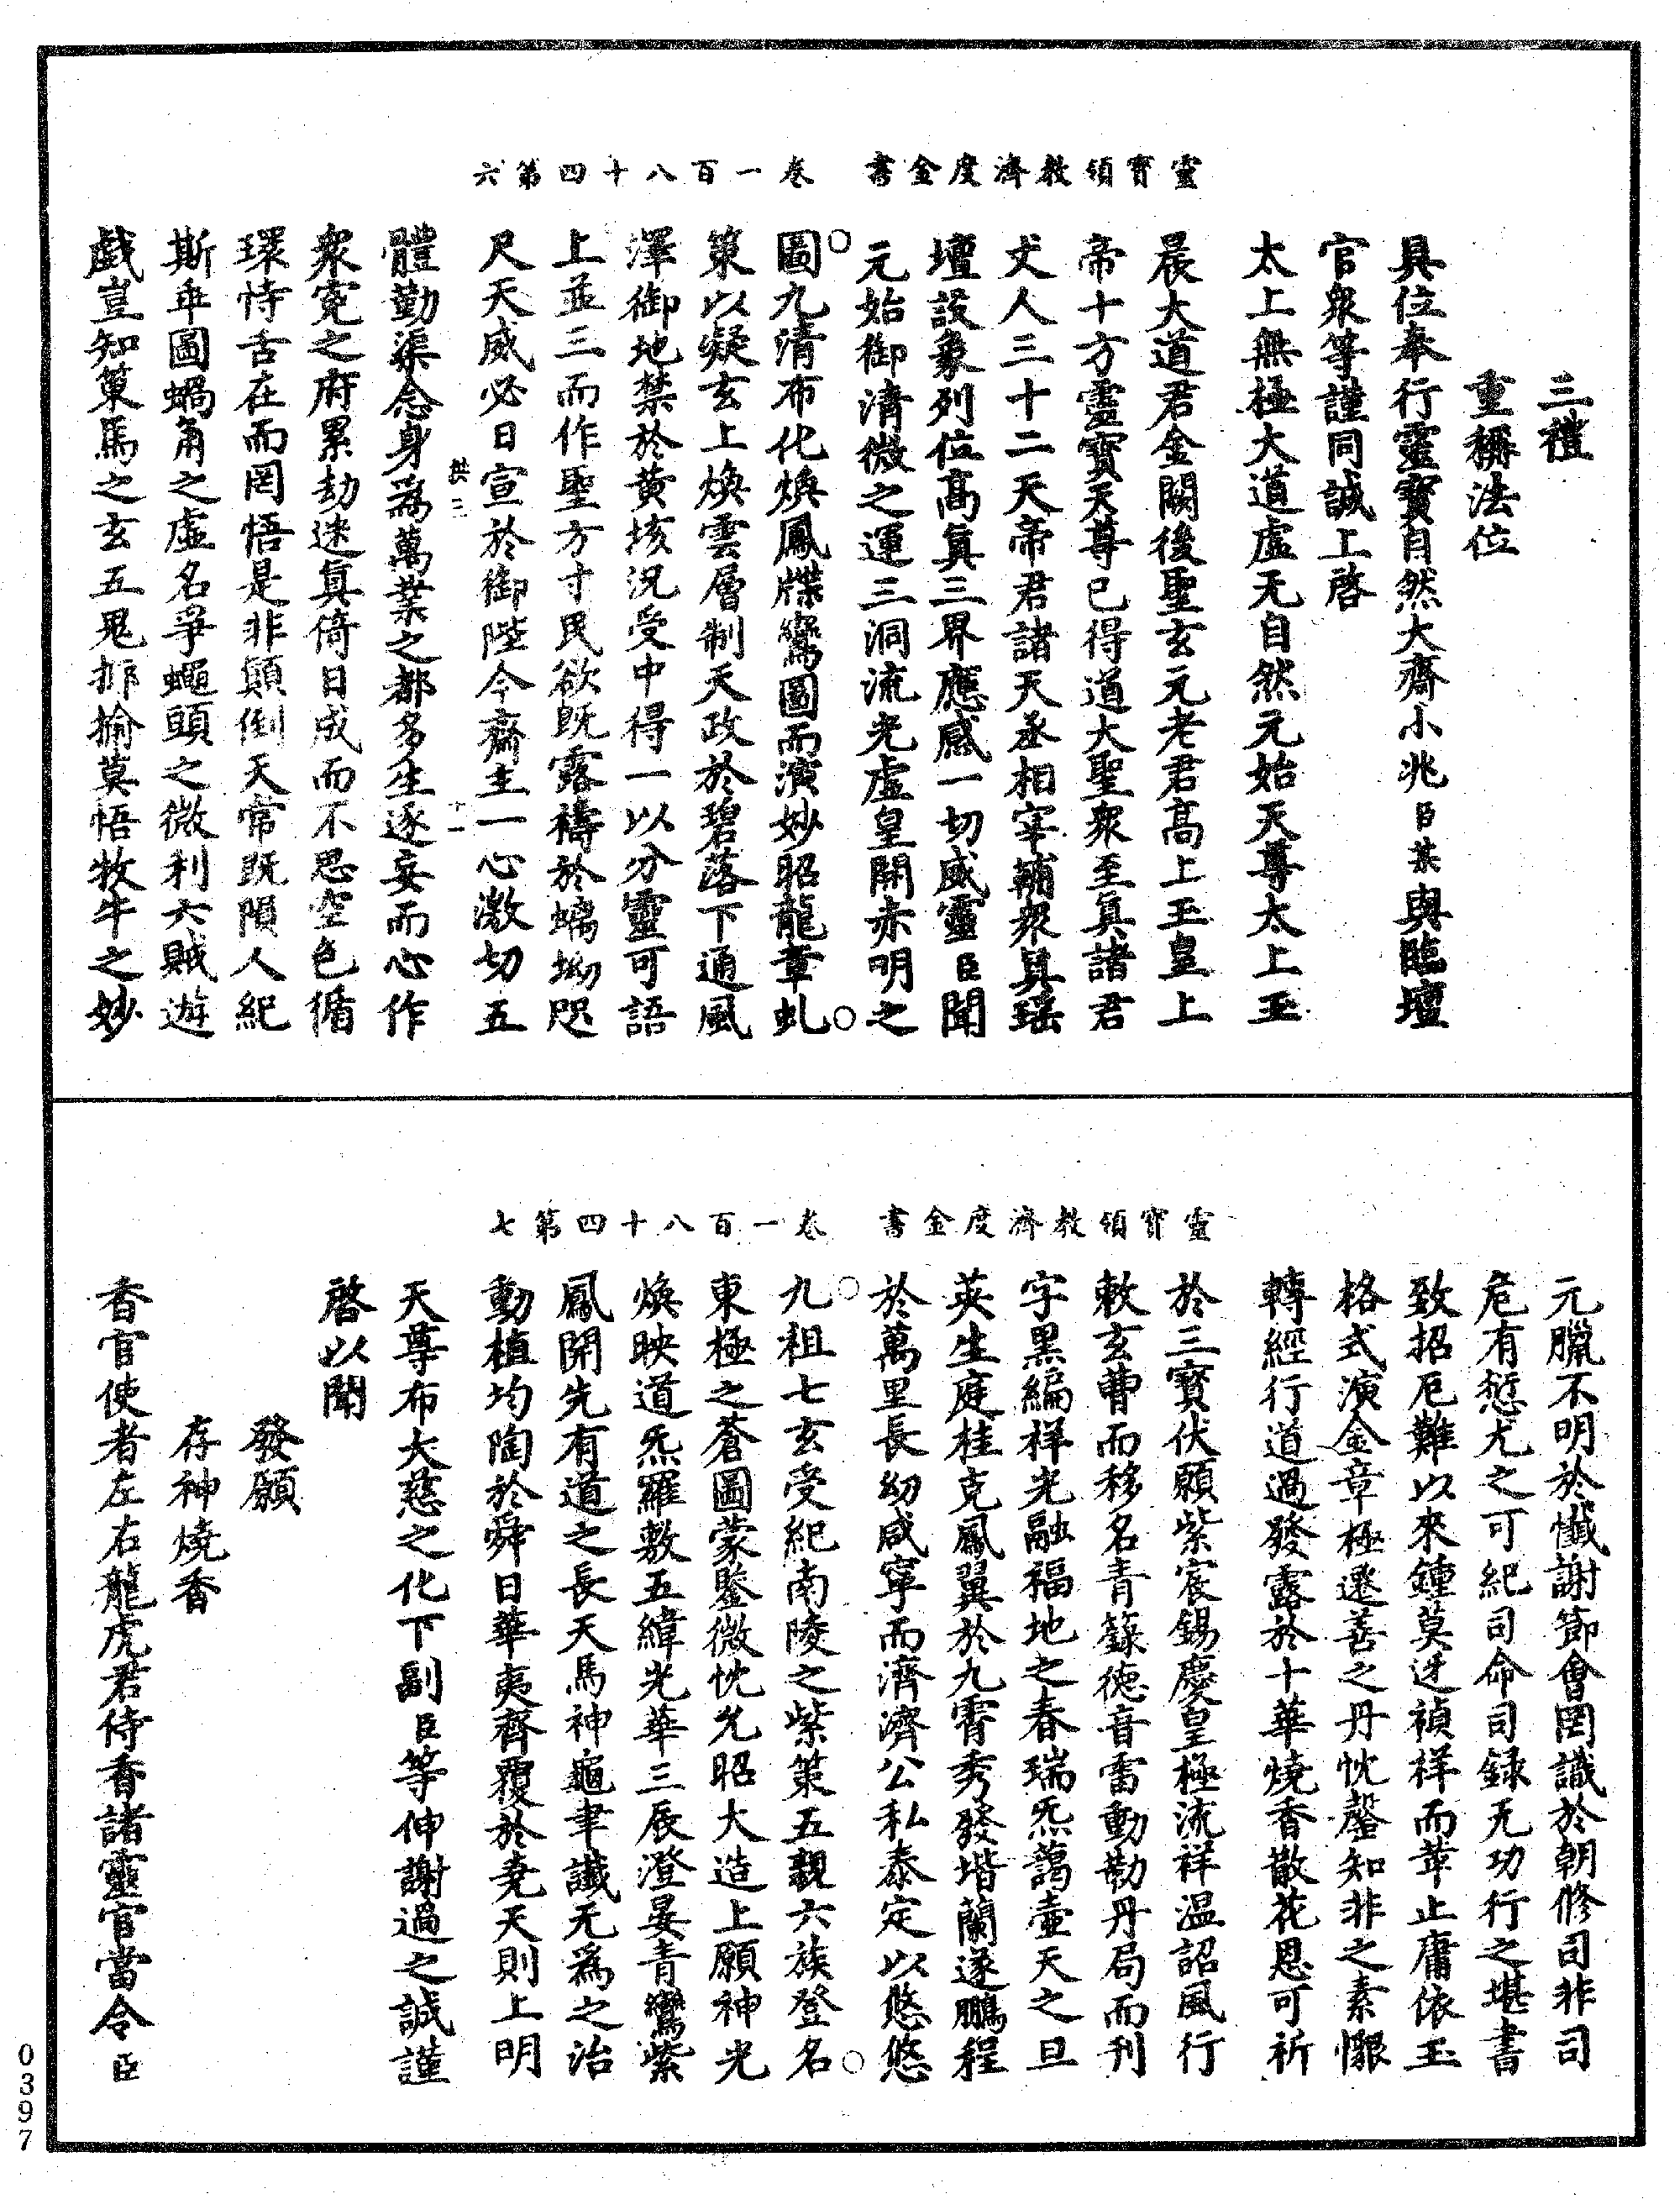 靈寶領教濟度金書　卷一百八十四第六
三禮
重稱法位
具位奉行靈寶自然大齋小兆臣某與臨壇
官衆等謹同誠上啓
太上無極大道虛无自然元始天尊太上玉
晨大道君金闕後聖玄元老君高上玉皇上
帝十方靈寶天尊已得道大聖衆至真諸君
丈人三十二天帝君諸天丞相宰輔衆真瑶
壇設象列位高真三界應感一切威靈臣聞
元始御清微之運三洞流光虛皇開赤明之
圖九清布化煥鳳牒鸞圖而演妙昭龍章虬
策以凝玄上煥雲層制天政於碧落下通風
澤御地禁於黄垓況受中得一以分靈可語
上並三而作聖方寸民欲既露禱於螭坳咫
尺天威必日宣於御陛今齋主一心激切五
洪三　十一
體勤渠念身為萬業之都多生逐妄而心作
衆寃之府累劫迷真倚日成而不思空色循
環恃舌在而罔悟是非顛倒天常既隕人紀
斯乖圖蝸角之虛名爭蠅頭之微利六賊遊
戲豈知策馬之玄五鬼揶揄莫悟牧牛之妙
靈寶領教濟度金書　卷一百八十四第七
元臘不明於懺謝節會罔識於朝修司非司
危有愆尤之可紀司命司録无功行之堪書
致招厄難以來鍾莫迓禎祥而萃止庸依玉
格式演金章極遷善之丹忱罄知非之素懇
轉經行道過發露於十華燒香散花恩可祈
於三寳伏願紫宸錫慶皇極流祥温詔風行
敕玄曹而移名青籙德音雷動勒丹局而刊
字黑編祥光融福地之春瑞炁藹壺天之旦
英生庭桂克鳳翼於九霄秀發堦蘭遂鵬程
於萬里長幼咸寧而濟濟公私泰定以悠悠
九祖七玄受紀南陵之紫策五親六族登名
東極之蒼圖蒙鑒微忱允昭大造上願神光
煥映道炁羅敷五緯光華三辰澄晏青鸞紫
鳳開先有道之長天馬神龜聿讖无爲之治
動植均陶於舜日華夷齊覆於堯天則上明
天尊布大慈之化下副臣等伸謝過之誠謹
啓以聞
發願
存神燒香
香官使者左右龍虎君侍香諸靈官當令臣
0397